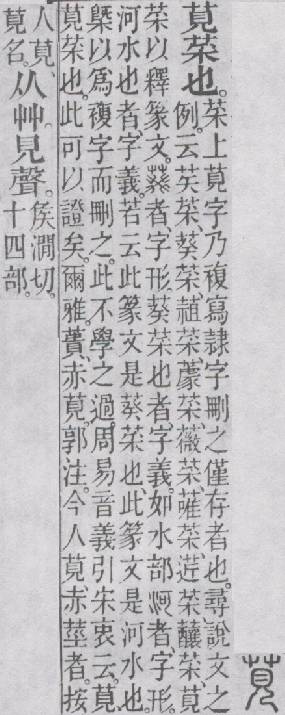 莧
莧菜也。
菜上莧字乃複寫隷字刪之僅存者也。尋說文之
例。云芺菜、葵菜、葙菜、蘪菜、薇菜、䔺菜、䒷菜、釀菜、莧
菜以釋篆文。䕮者、字形。葵菜也者、字義。如水部河者、字形。
河水也者、字義。若云此篆文是葵菜也、此篆文是河水也。
槩以爲複字而刪之。此不學之過。周易音義引宋衷云。莧、
莧菜也。此可以證矣。爾雅。蕢、赤莧。郭注。今人莧赤莖者。按
人莧、
莧名。
从艸。見聲。
矦澗切。
十四部。